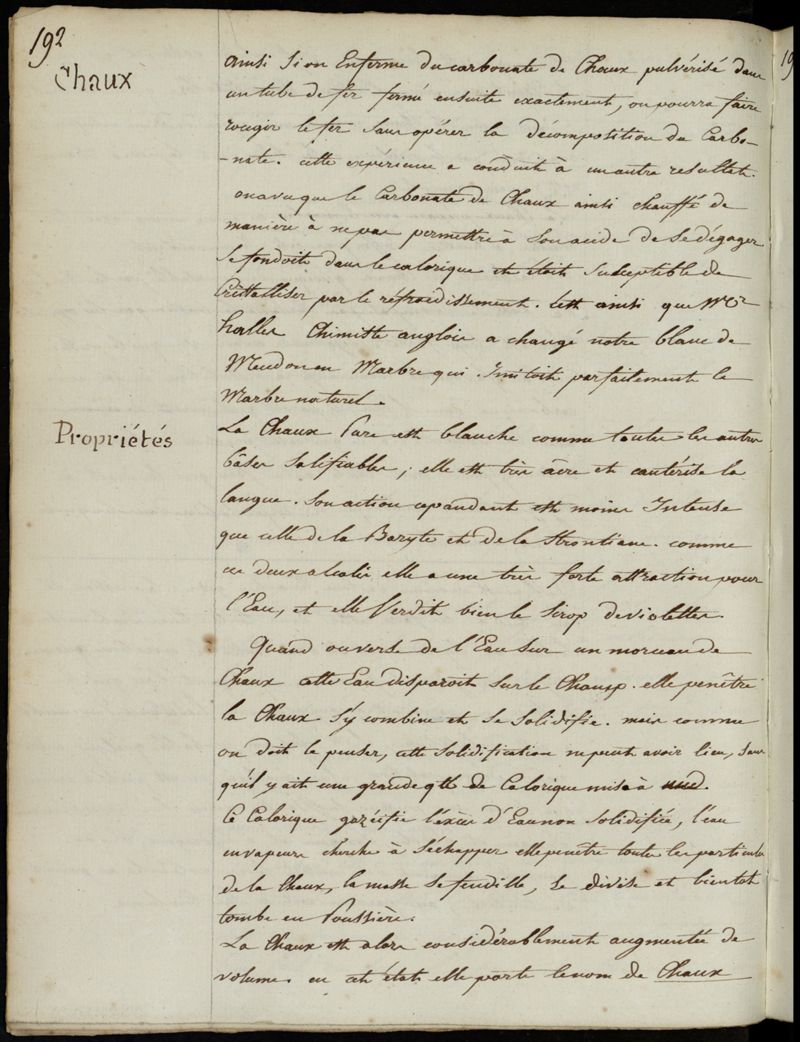 192
Chaux
ainsi si on Enferme du carbonate de Chaux pulvérisé dans
un tube de fer fermé ensuite exactement, on pourra faire
rougir le fer sans opérer la décomposition du Carbo-
-nate. cette expérience a conduit à un autre resultat.
on a vu que le Carbonate de Chaux ainsi chauffé de
manière à ne pas permettre à son acide de se dégager
se fondoit dans le calorique et étoit susceptible de
Cristalliser par le réfroidissement. C'est ainsi que Mr
haller Chimiste anglois a changé notre blanc de
Meudon en Marbre qui Imitoit parfaitement le
Marbre naturel.
Propriétés
La Chaux Pure est blanche comme toutes les autres
bâses salifiables; elle est très âcre et cautérise la
langue. Son action cependant est moins Intense
que celle de la Baryte et de la Strontiane. comme
ces deux alcalis elle a une très forte attraction pour
l'Eau, et elle Verdit bien le Sirop de violettes.
Quand on verse de l'Eau sur un morceau de
Chaux cette Eau disparoit sur le Champ. elle penêtre
la Chaux s'y combine et se solidifie. mais comme
on doit le penser, cette solidification ne peut avoir lieu, sans
qu'il y ait une grande qtté de Calorique mise à nud.
Ce Calorique gazéifie l'excès d'Eau non solidifiée, l'eau
en vapeurs cherche à s'échapper elle penêtre toutes les particules
de la Chaux, la masse se fendille, se divise et bientot
tombe en Poussière.
La Chaux est alors considérablement augmentée de
volume. en cet état elle porte le nom de Chaux